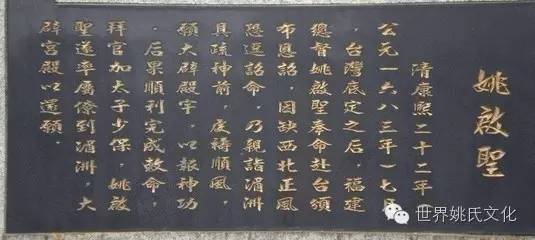 姚啟聖
清康熙二十二年（
公元一六八三年）七月
，台灣底定之后，福建
總督姚啟聖奉命赴台頒
布恩詔，因缺西北正風
恐詔命，乃親詣湄洲
具疏神前，虔禱順風，
願大辟殿宇，以報神功
，后果順利完成敕命，
拜官加太子少保，姚啟
聖遂率屬僚到湄洲，大
辟宮殿以還願。
世界姚氏文化